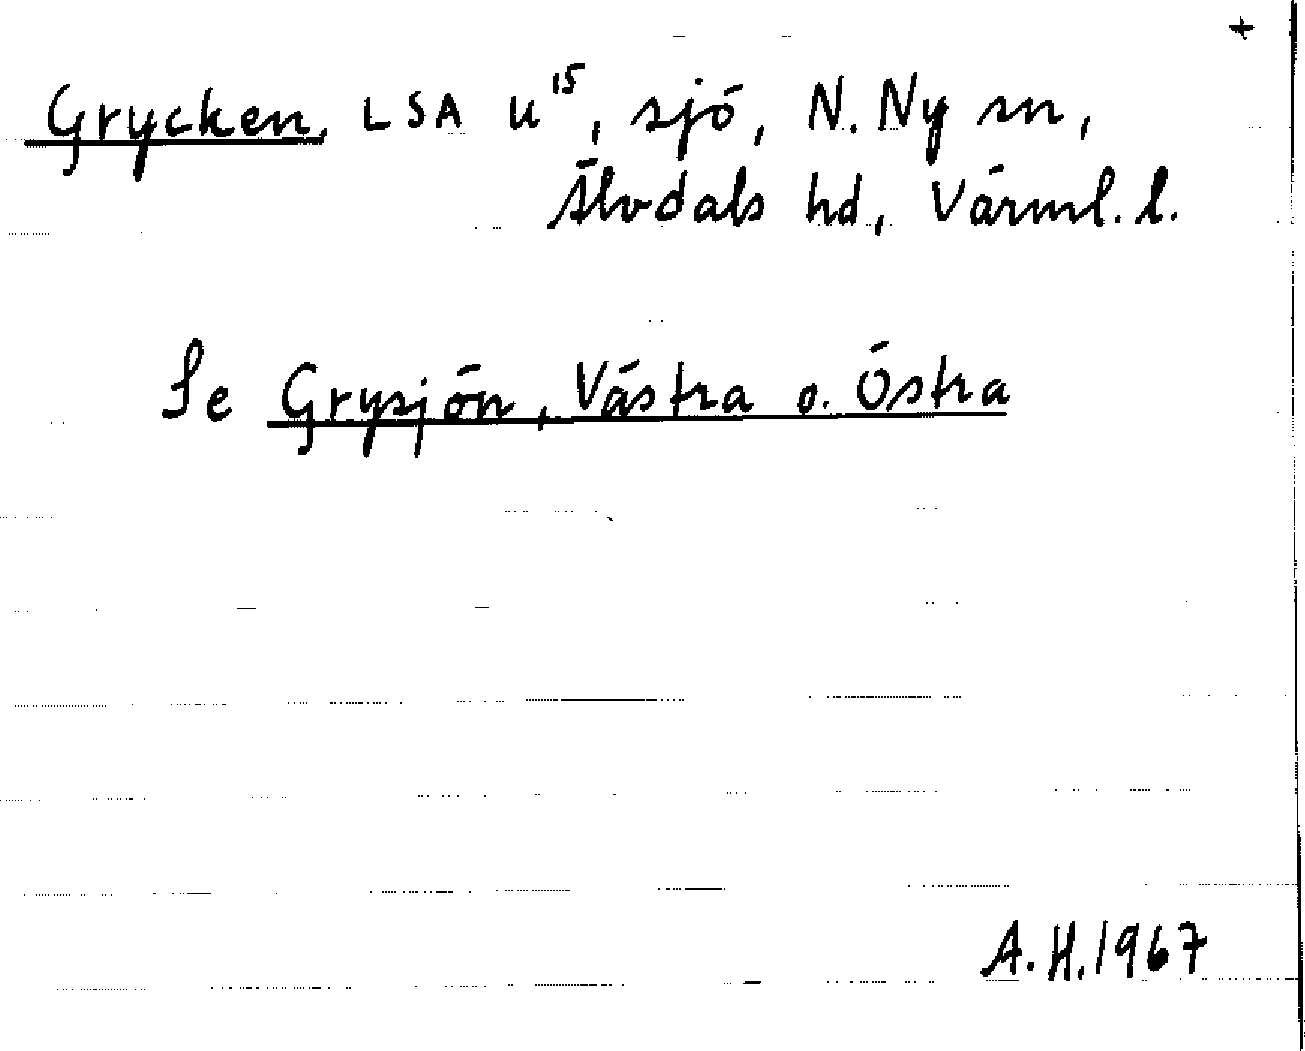 +
Grycken, LSA U15, sjö, N. Ny sn,
Älvdals hd, Värml. l.
Se Grysjön, Västra o. Östra
A. H. 1967